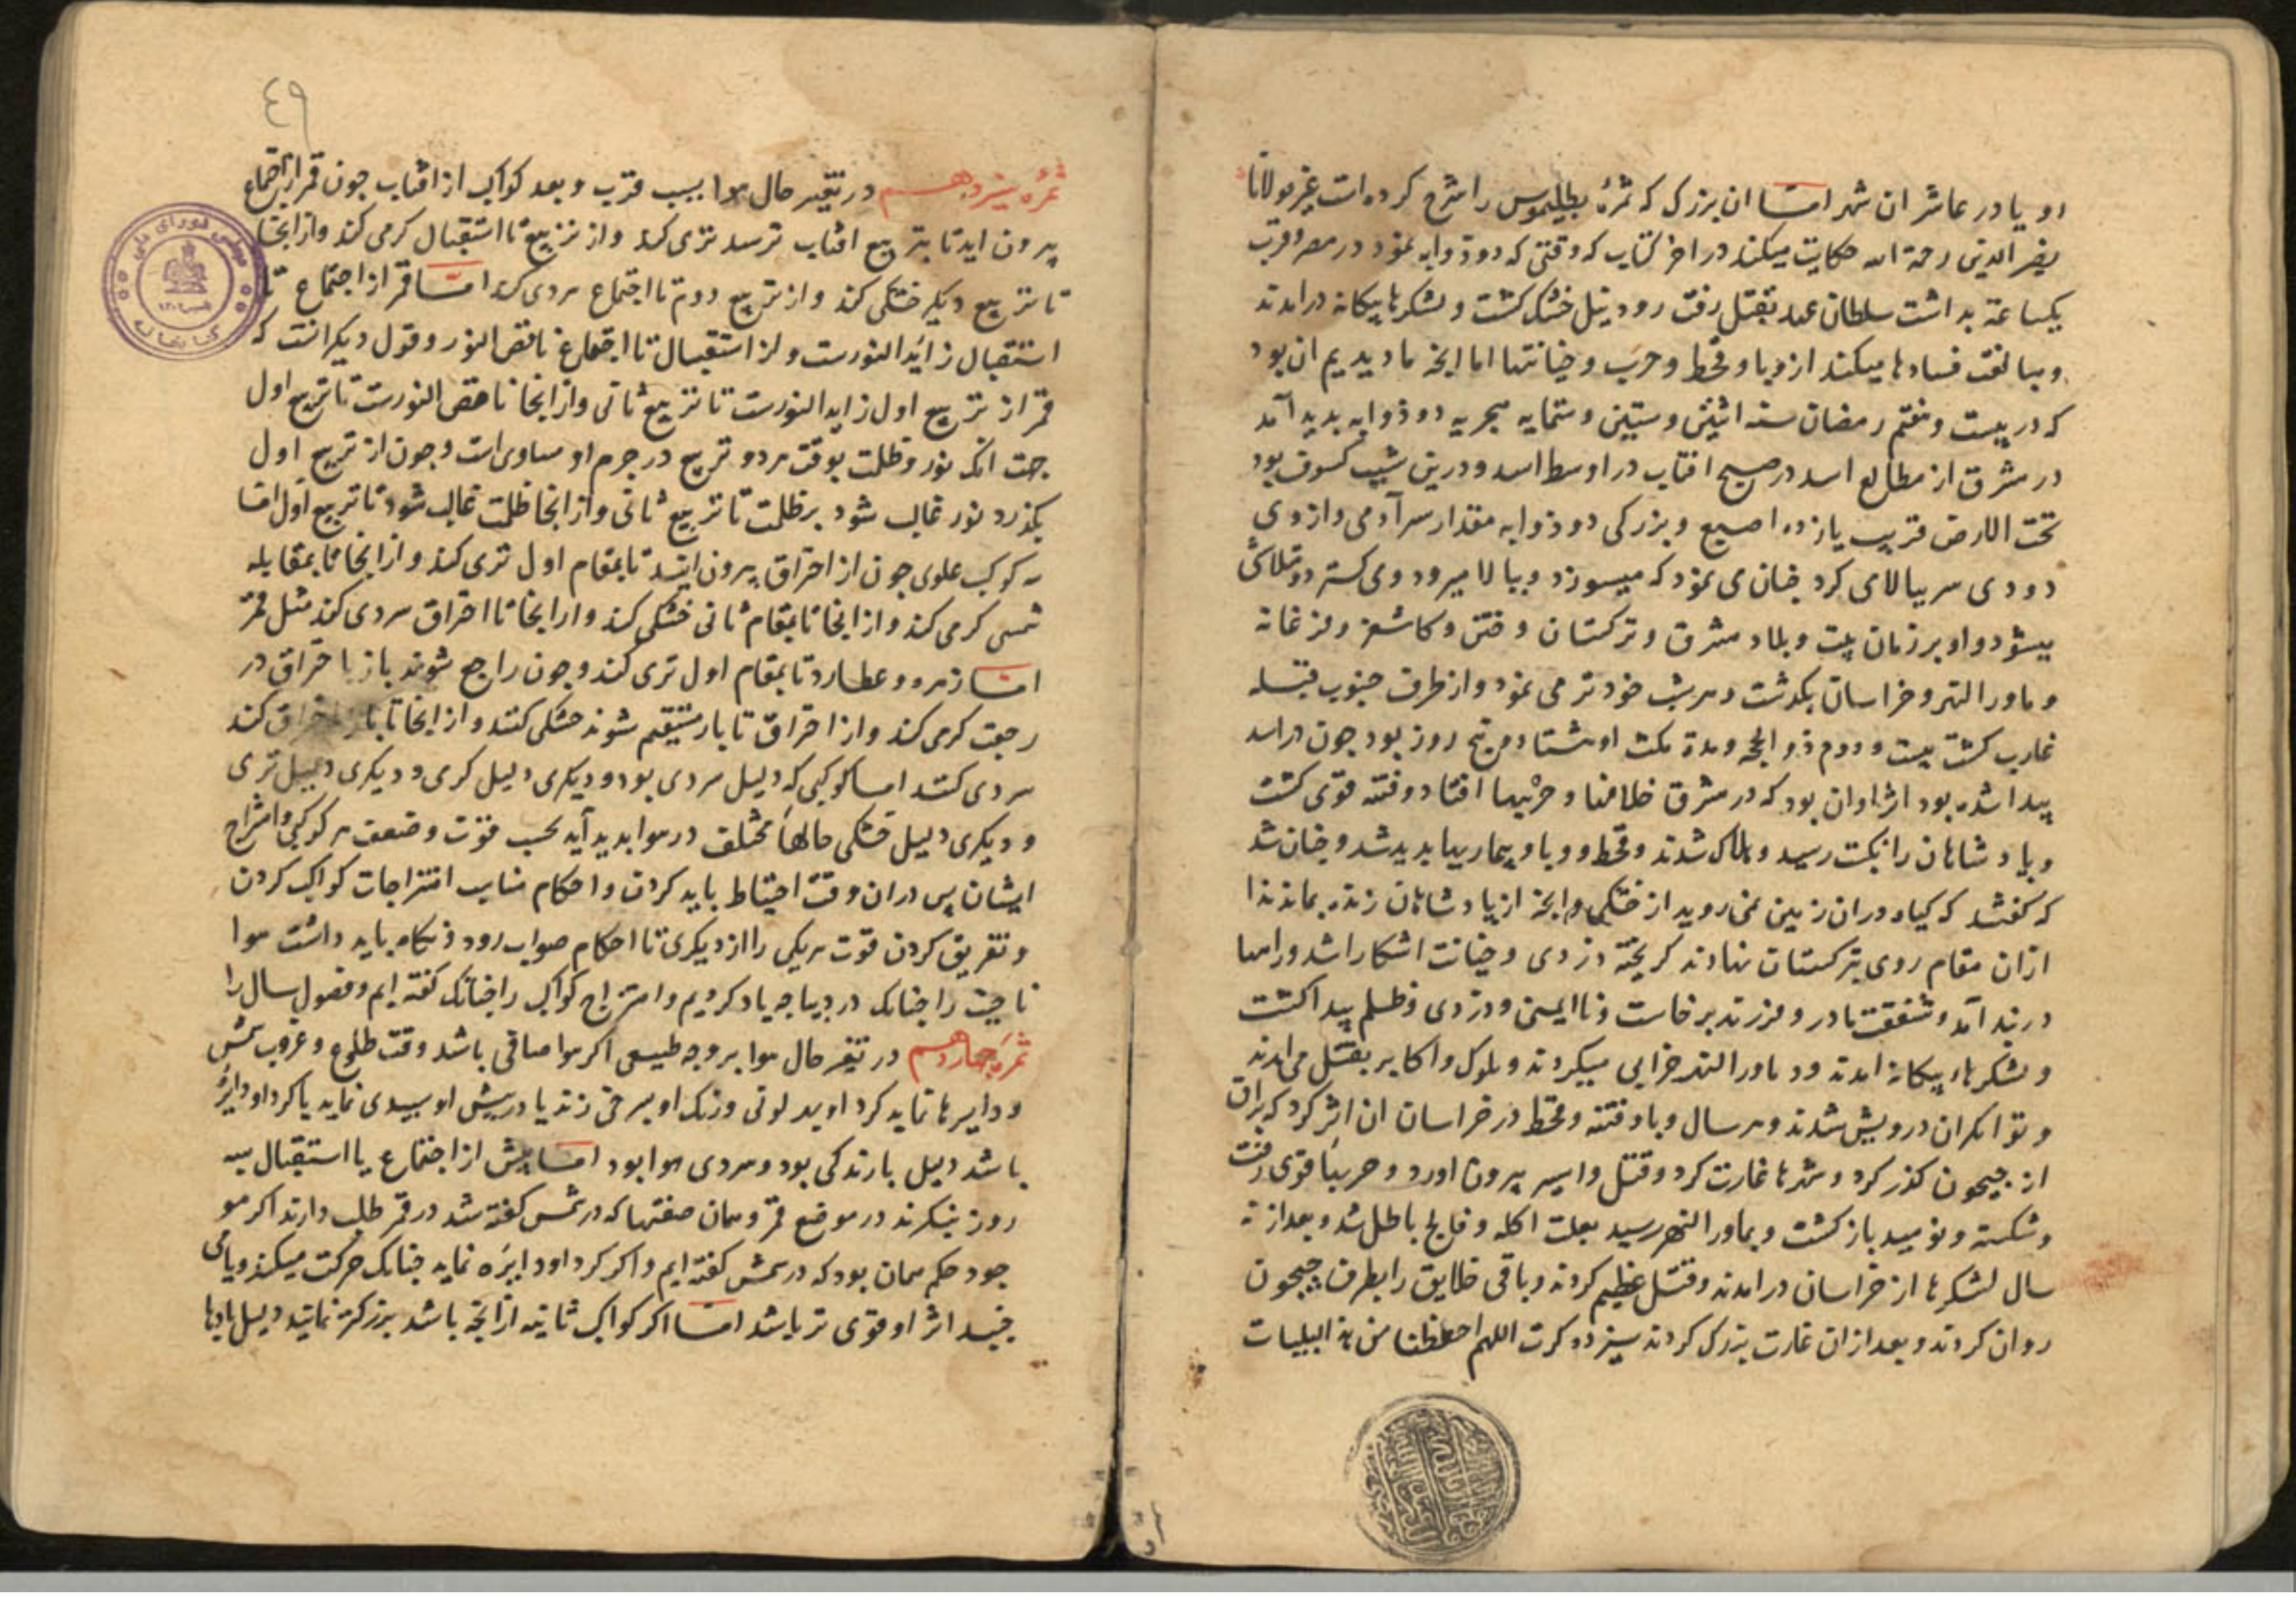 او یا در عاشر ان شهر امّا ان بزرک که ثمرهٔ بطلیموس را شرح کرده است غیر مولانا
نصر الدین رحمة الله حکایت میکند در اخر کتاب که وقتی که دو ذوابه نمود در مصر و قرب
یکساعة بداشت سلطان عهد بقتل رفت رود نیل خشک کشت و لشکرها بیکانه درامدند
و مبالغت فسادها میکند از وبا و قحط و حرب و خیانتها اما انچه ما دیدیم ان بود
که در بیست و هفتم رمضان سنه اثنین و ستین و ستمایه هجریه دو ذوابه بدید آمد
در مشرق از مطالع اسد در صبح افتاب در اوسط اسد و درین شب کسوف بود
تحت الارض قریب یازده اصبع و بزرکی دو ذوابه مقدار سر آدمی و از وی
دودی سر ببالا می کرد چنان می نمود که میسوزد و ببالا میرود و می کسترد و متلاشی
میشود و او بر زمان تبت و بلاد مشرق و ترکستان و ختن و کاشغر و فرغانه
و ماورا النهر و خراسان بکذشت و هر شب خود تر می نمود و از طرف جنوب قبله
غارب کشت بیست و دوم ذو الحجه و مدة مکث او هشتاد و پنج روز بود چون در اسد
پیدا شده بود اثر او ان بود که در مشرق خلافها و حربها افتاد و فتنه قوی کشت
و پادشاهان را نکبت رسید و هلاک شدند و قحط و وبا و بیماریها بدید شد و چنان شد
که کفتند که کیاه در ان زمین نمی روید از خشکی و انچه از پادشاهان زنده بماندند
ازان مقام روی بترکستان نهادند کریخته دزدی و خیانت اشکارا شد و راهها
در بند آمد و شفقت مادر و فرزند برخاست و ناایمنی و دزدی و ظلم پیدا کشت
و لشکرهاء بیکانه امدند و در ماورا النهر خرابی میکردند و ملوک و اکابر بقتل می امدند
و توانکران درویش شدند و هر سال وبا و فتنه و قحط در خراسان ان اثر کرد که براق
از جیحون کذر کرد و شهرها غارت کرد و قتل و اسیر بیرون اورد و حربها قوی رفت
و شکسته و نومید باز کشت و بماورا النهر رسید بعلت اکله و فالج باطل شد و بعد از نه
سال لشکرها از خراسان درامدند و قتل عظیم کردند و باقی خلایق را بطرف جیحون
روان کردند و بعد ازان غارت بزرک کردند سیزده کرت اللهم احفظنا من هذه البلیات
٤٩
ثمرهٔ سیزدهم در تغیر حال هوا بسبب قرب و بعد کواکب از افتاب چون قمر از اجتماع
بیرون اید تا بتربیع افتاب نرسد تری کند و از تربیع تا استقبال کرمی کند و از انجا
تا تربیع دیکر خشکی کند و از تربیع دوم تا اجتماع سردی کند امّا قمر از اجتماع تا
استقبال زائد النورست و از استقبال تا اجتماع ناقص النور و قول دیکر انست که
قمر از تربیع اول زاید النورست تا تربیع ثانی و از انجا ناقص النورست تا تربیع اول
جهت انکه نور و ظلمت بوقت هر دو تربیع در جرم او مساوی است و چون از تربیع اول
بکذرد نور غالب شود بر ظلمت تا تربیع ثانی و از انجا ظلمت غالب شود تا تربیع اول امّا
سه کوکب علوی چون از احتراق بیرون ایند تا بمقام اول تری کند و از انجا تا بمقابله
شمس کرمی کند و از انجا تا بمقام ثانی خشکی کند و از انجا تا احتراق سردی کند مثل قمر
امّا زهره و عطارد تا بمقام اول تری کند و چون راجع شوند باز باحتراق در
رجعت کرمی کند و از احتراق تا باز مستقیم شوند خشکی کنند و از انجا تا باز احتراق کند
سردی کنند اما کوکبی که دلیل سردی بود و دیکری دلیل کرمی و دیکری دلیل تری
و دیکری دلیل خشکی حالهاء مختلف در هوا بدید آید بحسب قوّت و ضعف هر کوکبی و امتزاج
ایشان پس دران وقت احتیاط باید کردن و احکام مناسب امتزاجات کواکب کردن
و تفریق کردن قوّت هر یکی را از دیکری تا احکام صواب رود و نکاه باید داشت هوا
ناحیت را چنانک در دیباجه یاد کردیم و امتزاج کواکب را چنانک کفته ایم و فصول سال را
ثمرهٔ چهاردهم در تغیر حال هوا بر وجه طبیعی اکر هوا صافی باشد وقت طلوع و غروب شمس
و دایرها نماید کرد او بد لونی و رنک او بسرخی زند یا در پیش او سپیدی نماید یا کرد او دایرهٔ
باشد دلیل بارندکی بود و سردی هوا بود امّا پیش از اجتماع یا استقبال بسه
روز بنکرند در موضع قمر و همان صفتها که در شمس کفته شد در قمر طلب دارند اکر هو
جود حکم همان بود که در شمس کفته ایم و اکر کرد او دایره نماید چنانک حرکت میکند و یا می
جنبد اثر او قوی تر باشد امّا اکر کواکب ثابته ازانچه باشد بزرکتر نمایند دلیل بادها